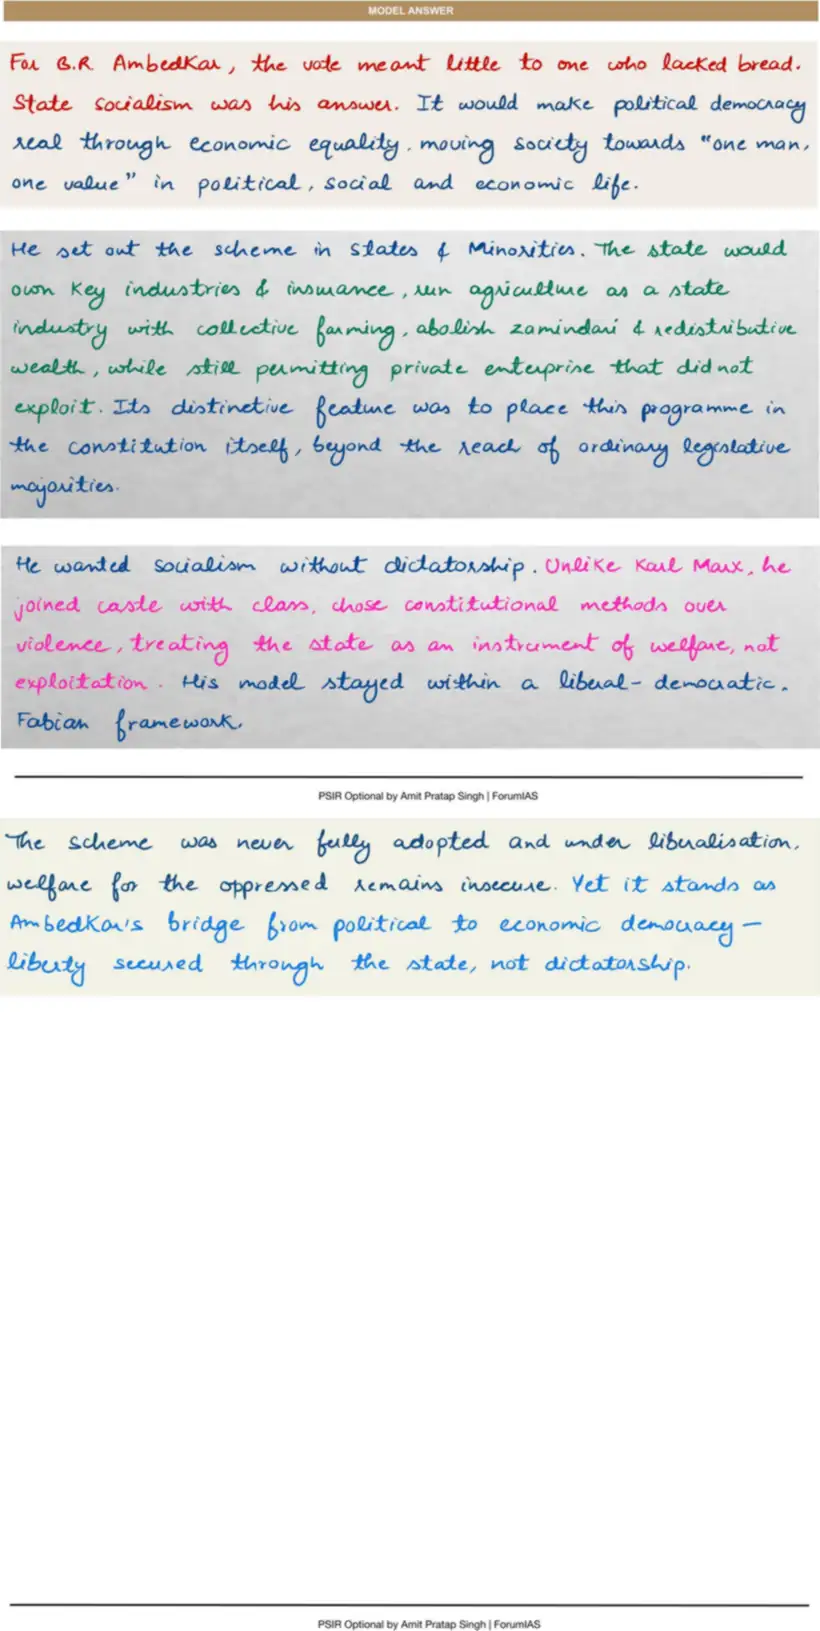 MODEL ANSWER
For B.R Ambedkar, the vote meant little to one who lacked bread.
State socialism was his answer. It would make political democracy
real through economic equality, moving society towards "one man,
one value" in political, social and economic life.
He set out the scheme in States & Minorities. The state would
own key industries & insurance, run agriculture as a state
industry with collective farming, abolish zamindari & redistributive
wealth, while still permitting private enterprise that did not
exploit. Its distinctive feature was to place this programme in
the constitution itself, beyond the reach of ordinary legislative
majorities.
He wanted socialism without dictatorship. Unlike Karl Marx, he
joined caste with class, chose constitutional methods over
violence, treating the state as an instrument of welfare, not
exploitation. His model stayed within a liberal-democratic.
Fabian framework.
PSIR Optional by Amit Pratap Singh | ForumIAS
The scheme was never fully adopted and under liberalisation,
welfare for the oppressed remains insecure. Yet it stands as
Ambedkar's bridge from political to economic democracy—
liberty secured through the state, not dictatorship.
PSIR Optional by Amit Pratap Singh | ForumIAS